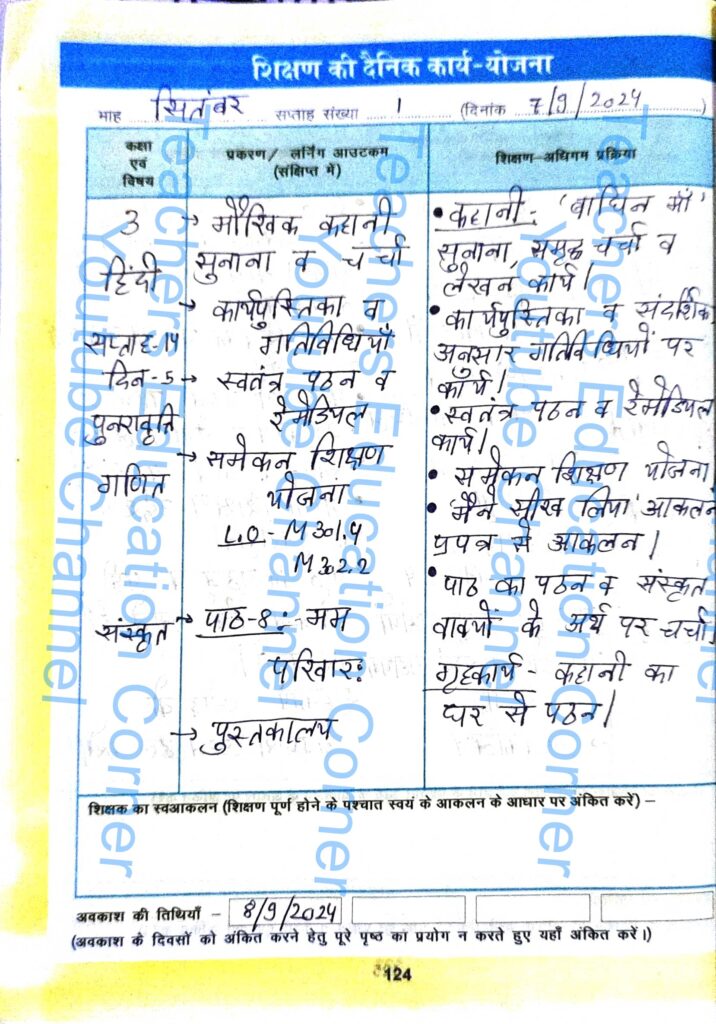 शिक्षण की दैनिक कार्य-योजना
माह सितंबर सप्ताह संख्या 1 (दिनांक 7/9/2024)
कक्षा
एवं
विषय
प्रकरण/ लर्निंग आउटकम
(संक्षिप्त में)
शिक्षण-अधिगम प्रक्रिया
3
हिंदी
सप्ताह-14
दिन-5
पुनरावृत्ति
गणित
संस्कृत
→ मौखिक कहानी
सुनाना व चर्चा
→ कार्यपुस्तिका व
गतिविधियाँ
→ स्वतंत्र पठन व
रेमेडियल
→ समेकन शिक्षण
योजना
L.O- M301.4
M302.2
→ पाठ-8: मम
परिवार:
→ पुस्तकालय
• कहानी: 'बाघिन माँ'
सुनाना, समृद्ध चर्चा व
लेखन कार्य।
• कार्यपुस्तिका व संदर्शिका
अनुसार गतिविधियों पर
कार्य।
• स्वतंत्र पठन व रेमेडियल
कार्य।
• समेकन शिक्षण योजना
• 'मैंने सीख लिया' आकलन
प्रपत्र से आकलन।
• पाठ का पठन व संस्कृत
वाक्यों के अर्थ पर चर्चा।
गृहकार्य - कहानी का
घर से पठन।
शिक्षक का स्वआकलन (शिक्षण पूर्ण होने के पश्चात स्वयं के आकलन के आधार पर अंकित करें) –
अवकाश की तिथियाँ – 8/9/2024
(अवकाश के दिवसों को अंकित करने हेतु पूरे पृष्ठ का प्रयोग न करते हुए यहाँ अंकित करें।)
124
Teachers Education Corner
Youtube Channel
Teachers Education Corner
Youtube Channel